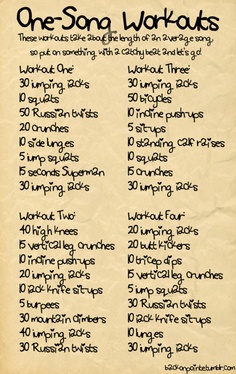 One-Song Workouts
These workouts take about the length of an average song,
so put on something with a catchy beat and let's go!
Workout One:
30 jumping jacks
10 squats
50 Russian twists
20 crunches
10 side lunges
5 jump squats
15 seconds Superman
30 jumping jacks
Workout Three:
30 jumping jacks
50 bicycles
10 incline pushups
5 situps
10 standing calf raises
5 jump squats
15 seconds Superman
30 jumping jacks
Workout Two:
40 high knees
15 vertical leg crunches
10 incline pushups
20 jumping jacks
10 jack knife situps
5 burpees
30 mountain climbers
40 jumping jacks
30 Russian twists
Workout Four:
20 jumping jacks
20 butt kickers
10 tricep dips
15 vertical leg crunches
5 jump squats
30 Russian twists
10 jack knife situps
10 lunges
30 jumping jacks
backonpointe.tumblr.com